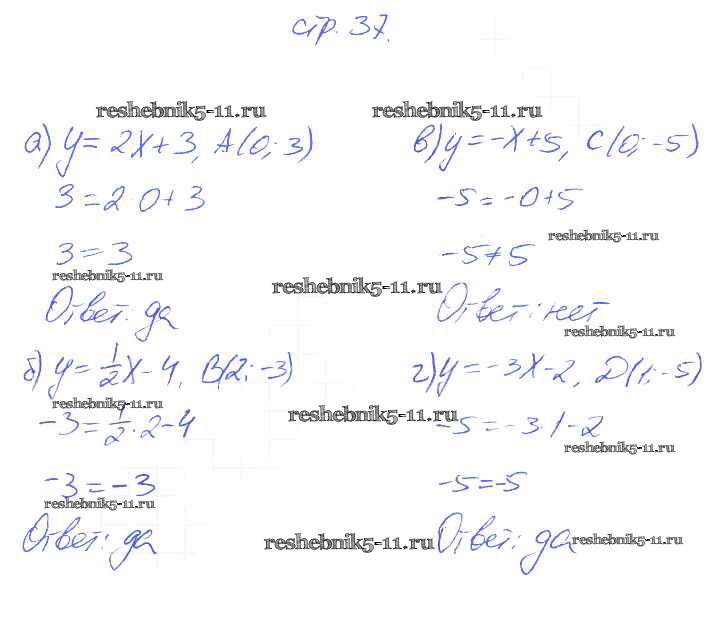 стр. 37.
reshebnik5-11.ru
reshebnik5-11.ru
а) y = 2x + 3, A(0; 3)
3 = 2·0 + 3
3 = 3
reshebnik5-11.ru
Ответ: да
в) y = -x + 5, C(0; -5)
-5 = -0 + 5
reshebnik5-11.ru
-5 ≠ 5
reshebnik5-11.ru
Ответ: нет
reshebnik5-11.ru
б) y = 1/2 x - 4, B(2; -3)
reshebnik5-11.ru
-3 = 1/2 · 2 - 4
-3 = -3
reshebnik5-11.ru
Ответ: да
г) y = -3x - 2, D(1; -5)
reshebnik5-11.ru
-5 = -3·1 - 2
reshebnik5-11.ru
-5 = -5
reshebnik5-11.ru
Ответ: да
reshebnik5-11.ru